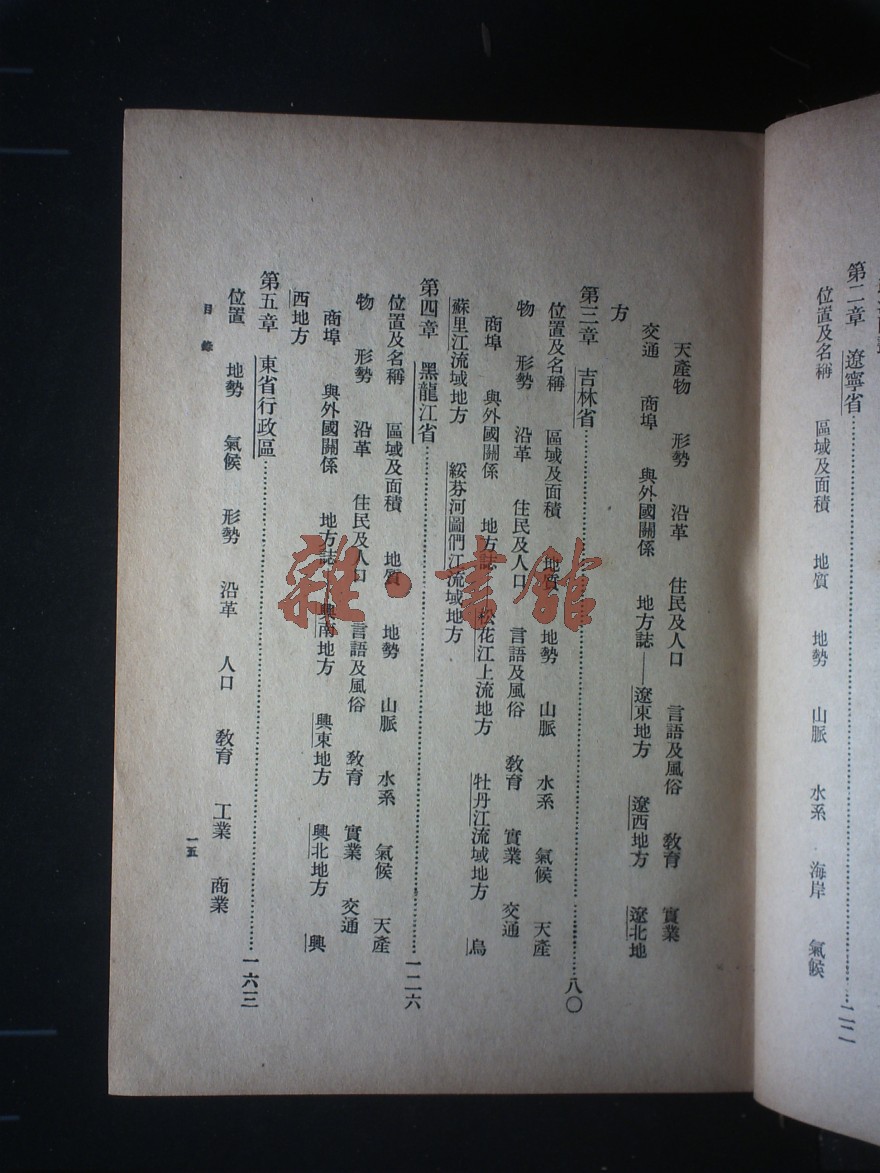 第二章 遼寧省……二二
位置及名稱 區域及面積 地質 地勢 山脈 水系 海岸 氣候
天產物 形勢 沿革 住民及人口 言語及風俗 教育 實業
交通 商埠 與外國關係 地方誌——遼東地方 遼西地方 遼北地
方
第三章 吉林省……八〇
位置及名稱 區域及面積 地質 地勢 山脈 水系 氣候 天產
物 形勢 沿革 住民及人口 言語及風俗 教育 實業 交通
商埠 與外國關係 地方誌——松花江上流地方 牡丹江流域地方 烏
蘇里江流域地方 綏芬河圖們江流域地方
第四章 黑龍江省……一二六
位置及名稱 區域及面積 地質 地勢 山脈 水系 氣候 天產
物 形勢 沿革 住民及人口 言語及風俗 教育 實業 交通
商埠 與外國關係 地方誌——興南地方 興東地方 興北地方 興
西地方
第五章 東省行政區……一六三
位置 地勢 氣候 形勢 沿革 人口 教育 工業 商業
目錄
一五
雜·書館